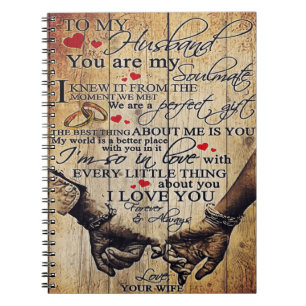 TO MY
Husband
You are my
Soulmate
I KNEW IT FROM THE
MOMENT WE MET
We are a perfect gift
THE BEST THING ABOUT ME IS YOU
My world is a better place
with you in it
I'm so in love with
EVERY LITTLE THING
about you
I LOVE YOU
Forever
& Always
Love,
YOUR WIFE